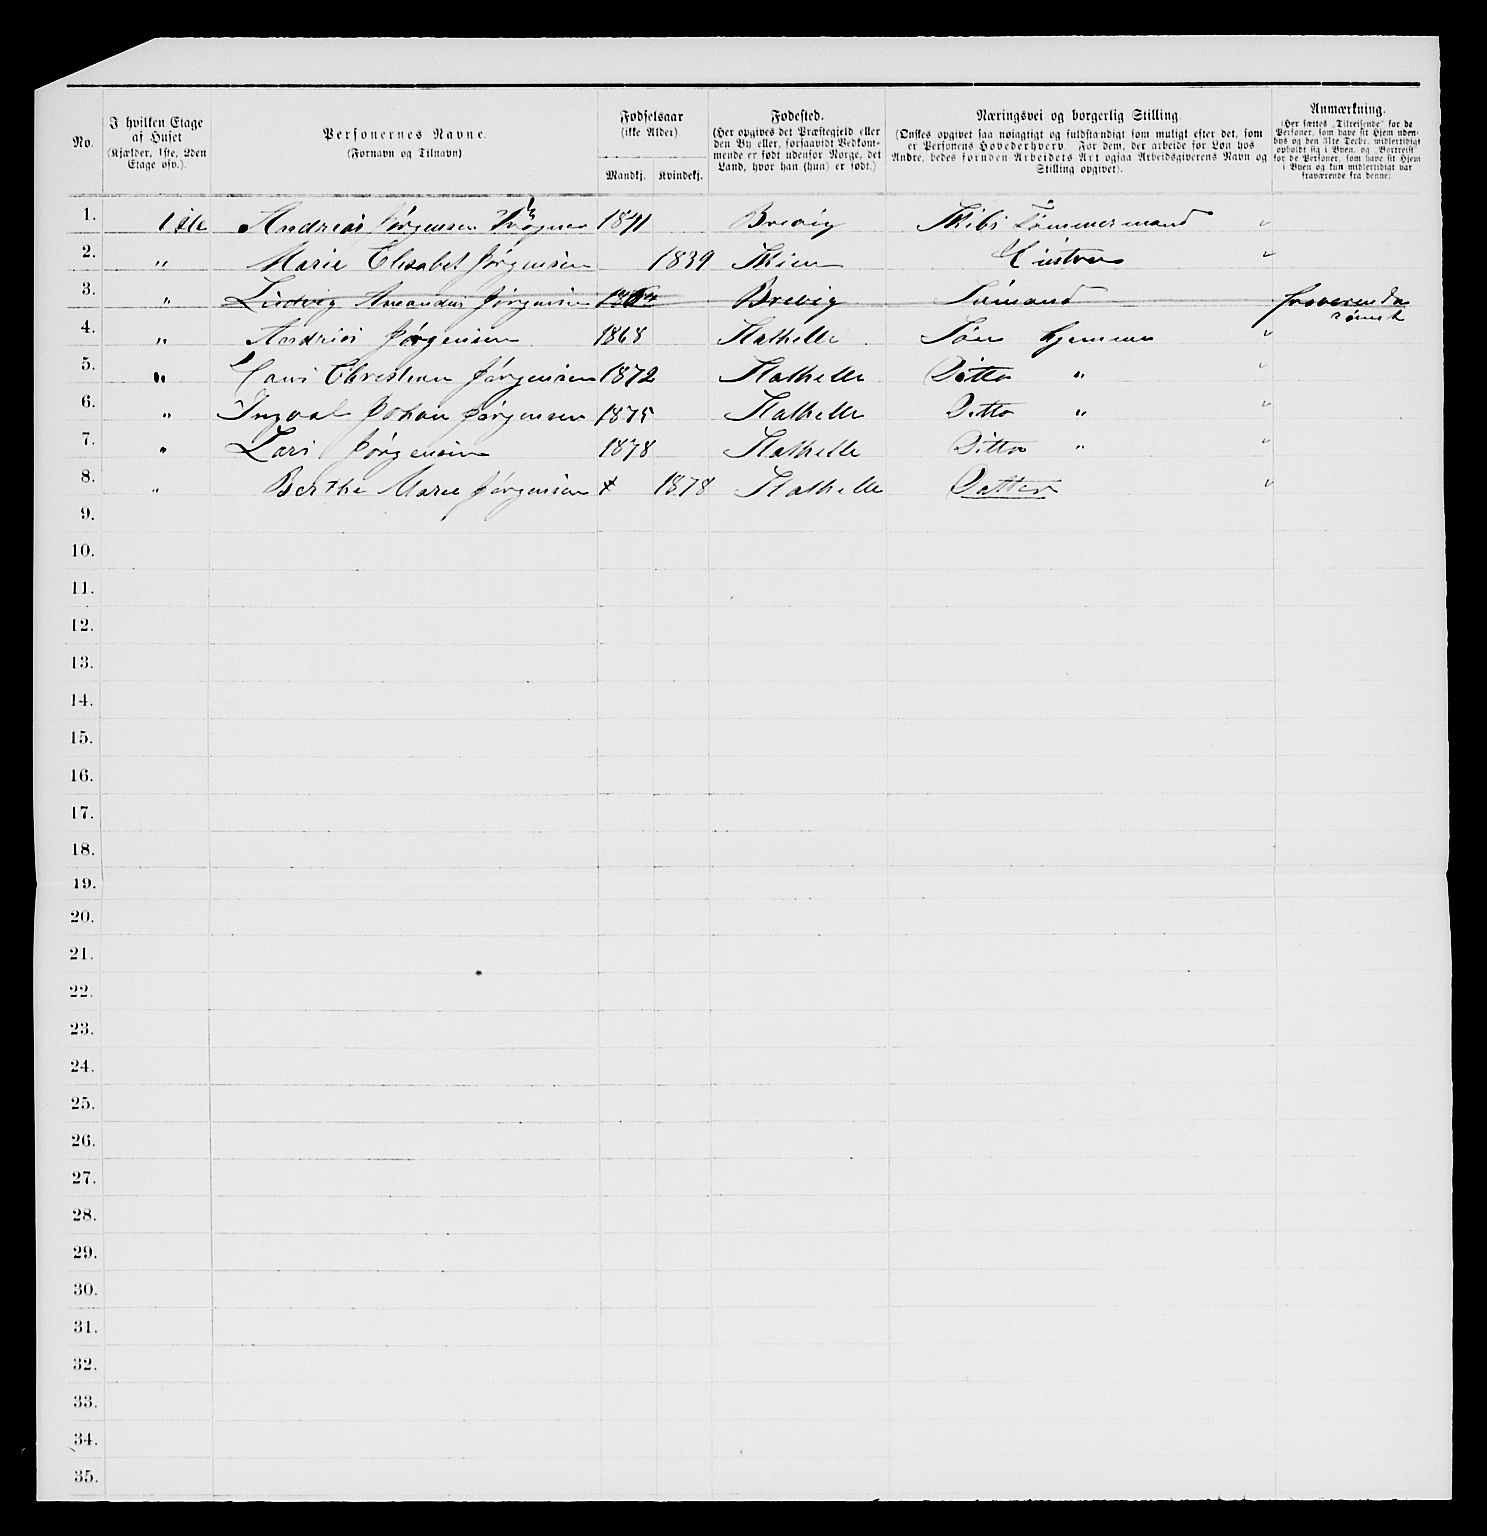 No.
I hvilken Etage
af Huset
(Kjælder, 1ste, 2den
Etage osv.).
Personernes Navne.
(Fornavn og Tilnavn)
Fødselsaar
(ikke Alder)
Mandkj. Kvindekj.
Fødested.
(Her opgives det Præstegjeld eller
den By eller, forsaavidt Vedkom-
mende er født udenfor Norge, det
Land, hvor han (hun) er født.)
Næringsvei og borgerlig Stilling
(Ønskes opgivet saa nøiagtigt og fuldstændigt som muligt efter det, som
er Personens Hovederhverv. For dem, der arbeide for Løn hos
Andre, bedes foruden Arbeidets Art ogsaa Arbeidsgiverens Navn og
Stilling opgivet).
Anmærkning.
(Her sættes „Tilreisende“ for de
Personer, som have sit Hjem uden-
bys og den 31te Decbr. midlertidigt
opholdt sig i Byen, og „Bortreist“
for de Personer, som have sit Hjem
i Byen og kun midlertidigt var
fraværende fra denne).
1. 1 ste Andreas Jørgensen 1841 Brevig Skibs Tømmermand "
2. " Marie Elisabet Jørgensen 1839 Skien Hustru "
3. " Ludvig Amandus Jørgensen Brevig Sømand
4. " Andreas Jørgensen 1868 Stathelle Søn hjemme "
5. " Hans Christian Jørgensen 1872 Stathelle Ditto " "
6. " Ingval Johan Jørgensen 1875 Stathelle Ditto " "
7. " Lars Jørgensen 1878 Stathelle Ditto " "
8. " Berthe Marie Jørgensen + 1878 Stathelle Datter "
9.
10.
11.
12.
13.
14.
15.
16.
17.
18.
19.
20.
21.
22.
23.
24.
25.
26.
27.
28.
29.
30.
31.
32.
33.
34.
35.